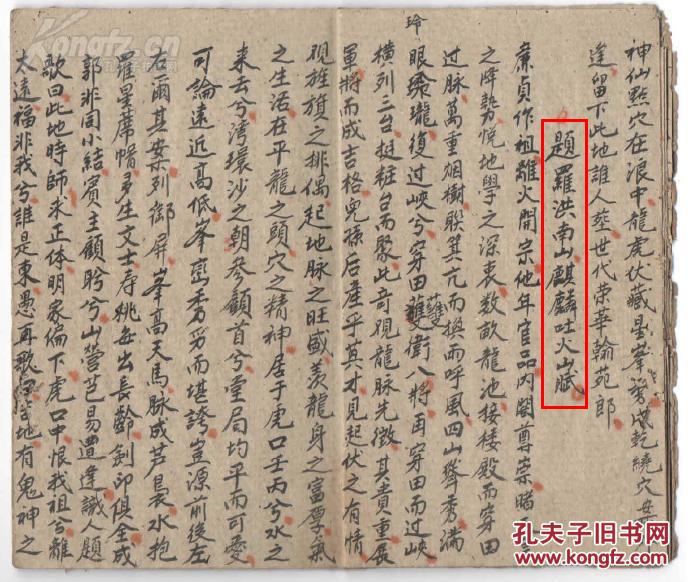 神仙點穴在浪中龍虎伏藏星峯
乾繞穴
逢留下此地誰人塟世代荣華翰苑郎
題羅洪南山麒麟吐火山賦
廉貞作祖離火開宗他年官品內閣尊崇睹
之降势悦地學之深衷数畝龍池接楼殿而穿田
过脉萬重烟樹联箕亢而
而呼風四山聳秀滿
玲
眼
瓏復过峽兮穿田
雙
衛八將再穿田而过峽
橫列三台挺粧台而聚此奇現龍脉先徵其貴重展
軍將而成吉格兒孫后產乎英才見起伏之有情
現旌旗之排偶起地脉之旺盛羨龍身之富厚氣
之生活在平龍之頭穴之精神居于虎口壬丙兮水之
来去兮湾環沙之朝参顧首兮堂局均平而可愛
可論遠近高低峯巒秀
而堪誇豈源前後左
右爾其案列御屏峯高天馬脉成芦
水抱
羅星蓆帽多生文士寿
每出長齡劍印俱全成
郭非同小結賓主顧盻兮山
芭易遭逢識人題
歌曰此地時師求正体明家偏下虎口中恨我祖兮離
太遠福非我兮誰是東愚再歌
地有鬼神之
kongfz.com
孔夫子旧书网
www.kongfz.com